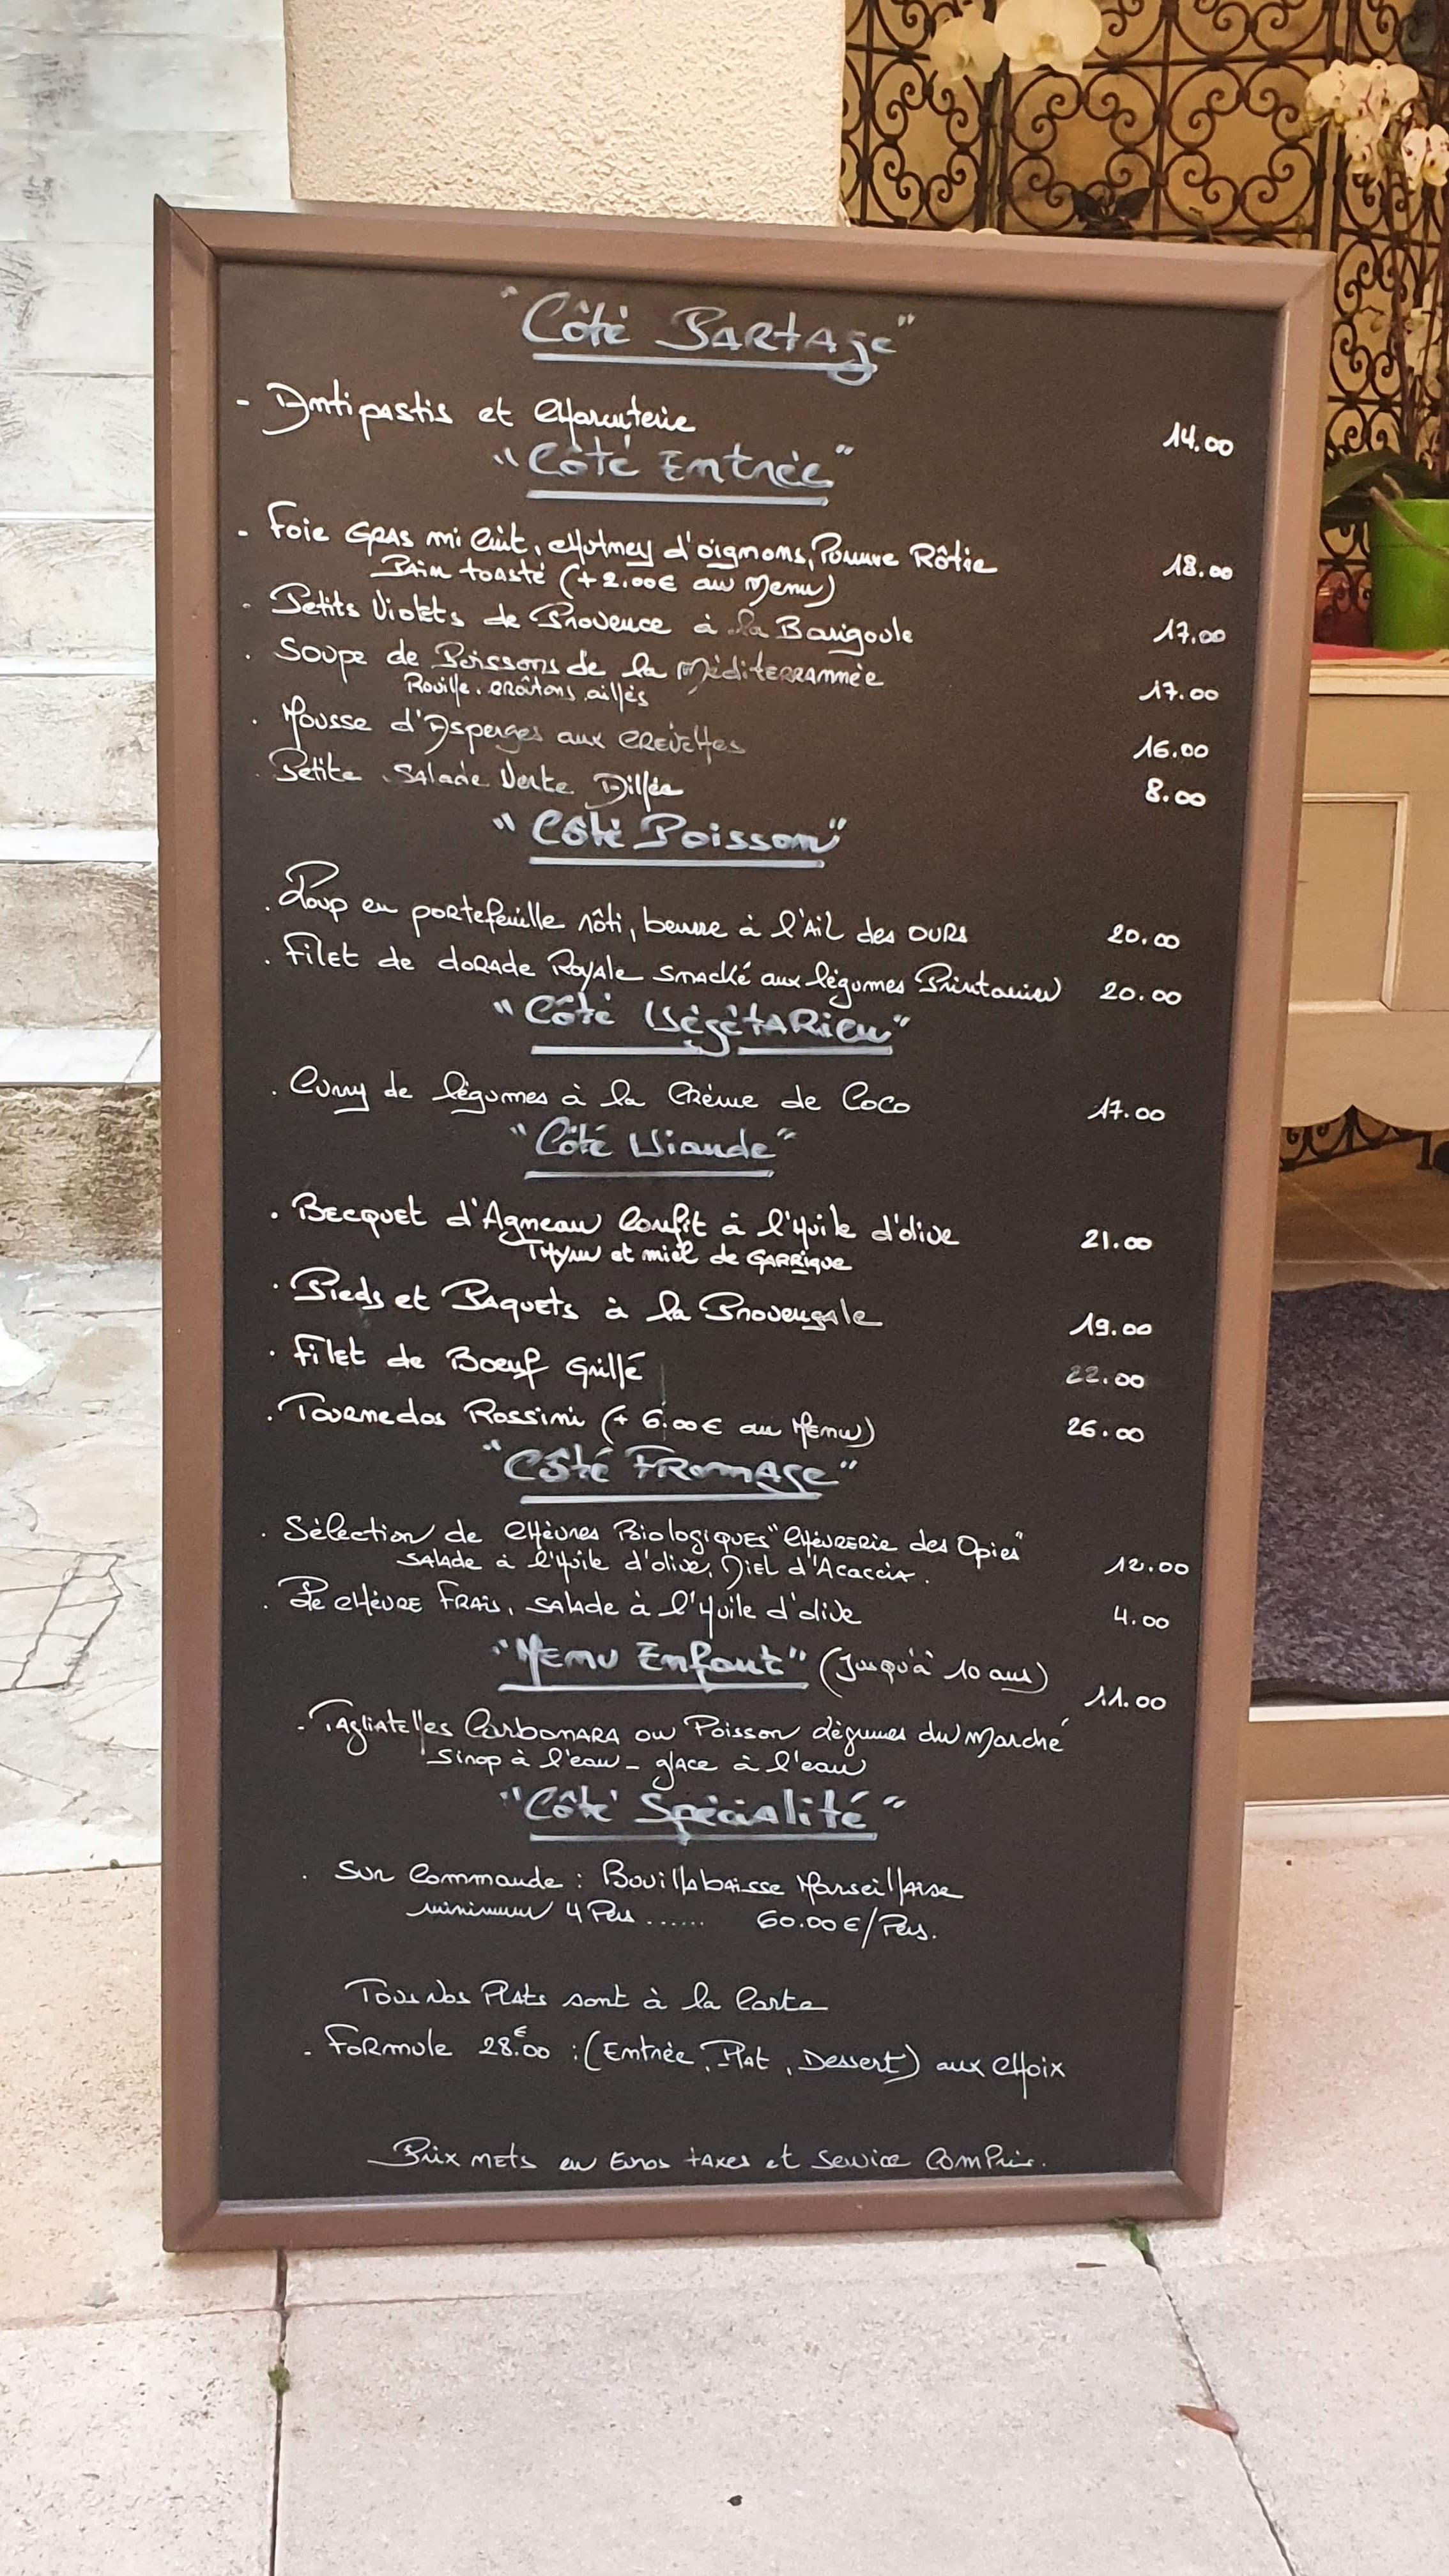 "Côté Partage"
- Antipastis et Charcuterie 14.00
"Côté Entrée"
- Foie Gras mi Cuit, Chutney d'oignons, Pomme Rôtie 18.00
Pain toasté (+ 2.00€ au Menu)
- Petits Violets de Provence à la Barigoule 17.00
. Soupe de Poissons de la Méditerrannée 17.00
Rouille. croûtons aillés
. Mousse d'Asperges aux CREVEttes 16.00
. Petite Salade Verte Aillée 8.00
"Côté Poisson"
. Loup en portefeuille rôti, beurre à l'Ail des OURS 20.00
. Filet de dorade Royale smacké aux légumes Printanier 20.00
"Côté Végétarien"
. Curry de légumes à la Crème de Coco 17.00
"Côté Viande"
. Becquet d'Agneau Confit à l'Huile d'olive 21.00
Thym et miel de GARRIQUE
. Pieds et Paquets à la Provençale 19.00
. Filet de Boeuf Grillé 22.00
. Tournedos Rossini (+ 6.00€ au Menu) 26.00
"Côté Fromage"
. Sélection de Chèvres Biologiques "Chèvrerie des Opies" 12.00
Salade à l'Huile d'olive, Miel d'Acaccia.
. Le Chèvre Frais, salade à l'Huile d'olive 4.00
"Menu Enfant" (Jusqu'à 10 ans) 11.00
- Tagliatelles Carbonara ou Poisson légumes du Marché
Sirop à l'eau - glace à l'eau
"Côté Spécialité"
. Sur Commande : Bouillabaisse Marseillaise
minimum 4 Pers ...... 60.00€/Pers.
Tous Nos Plats sont à la Carte
- Formule 28.€00 : (Entrée, Plat, Dessert) aux Choix
Prix nets en Euros taxes et service Compris.